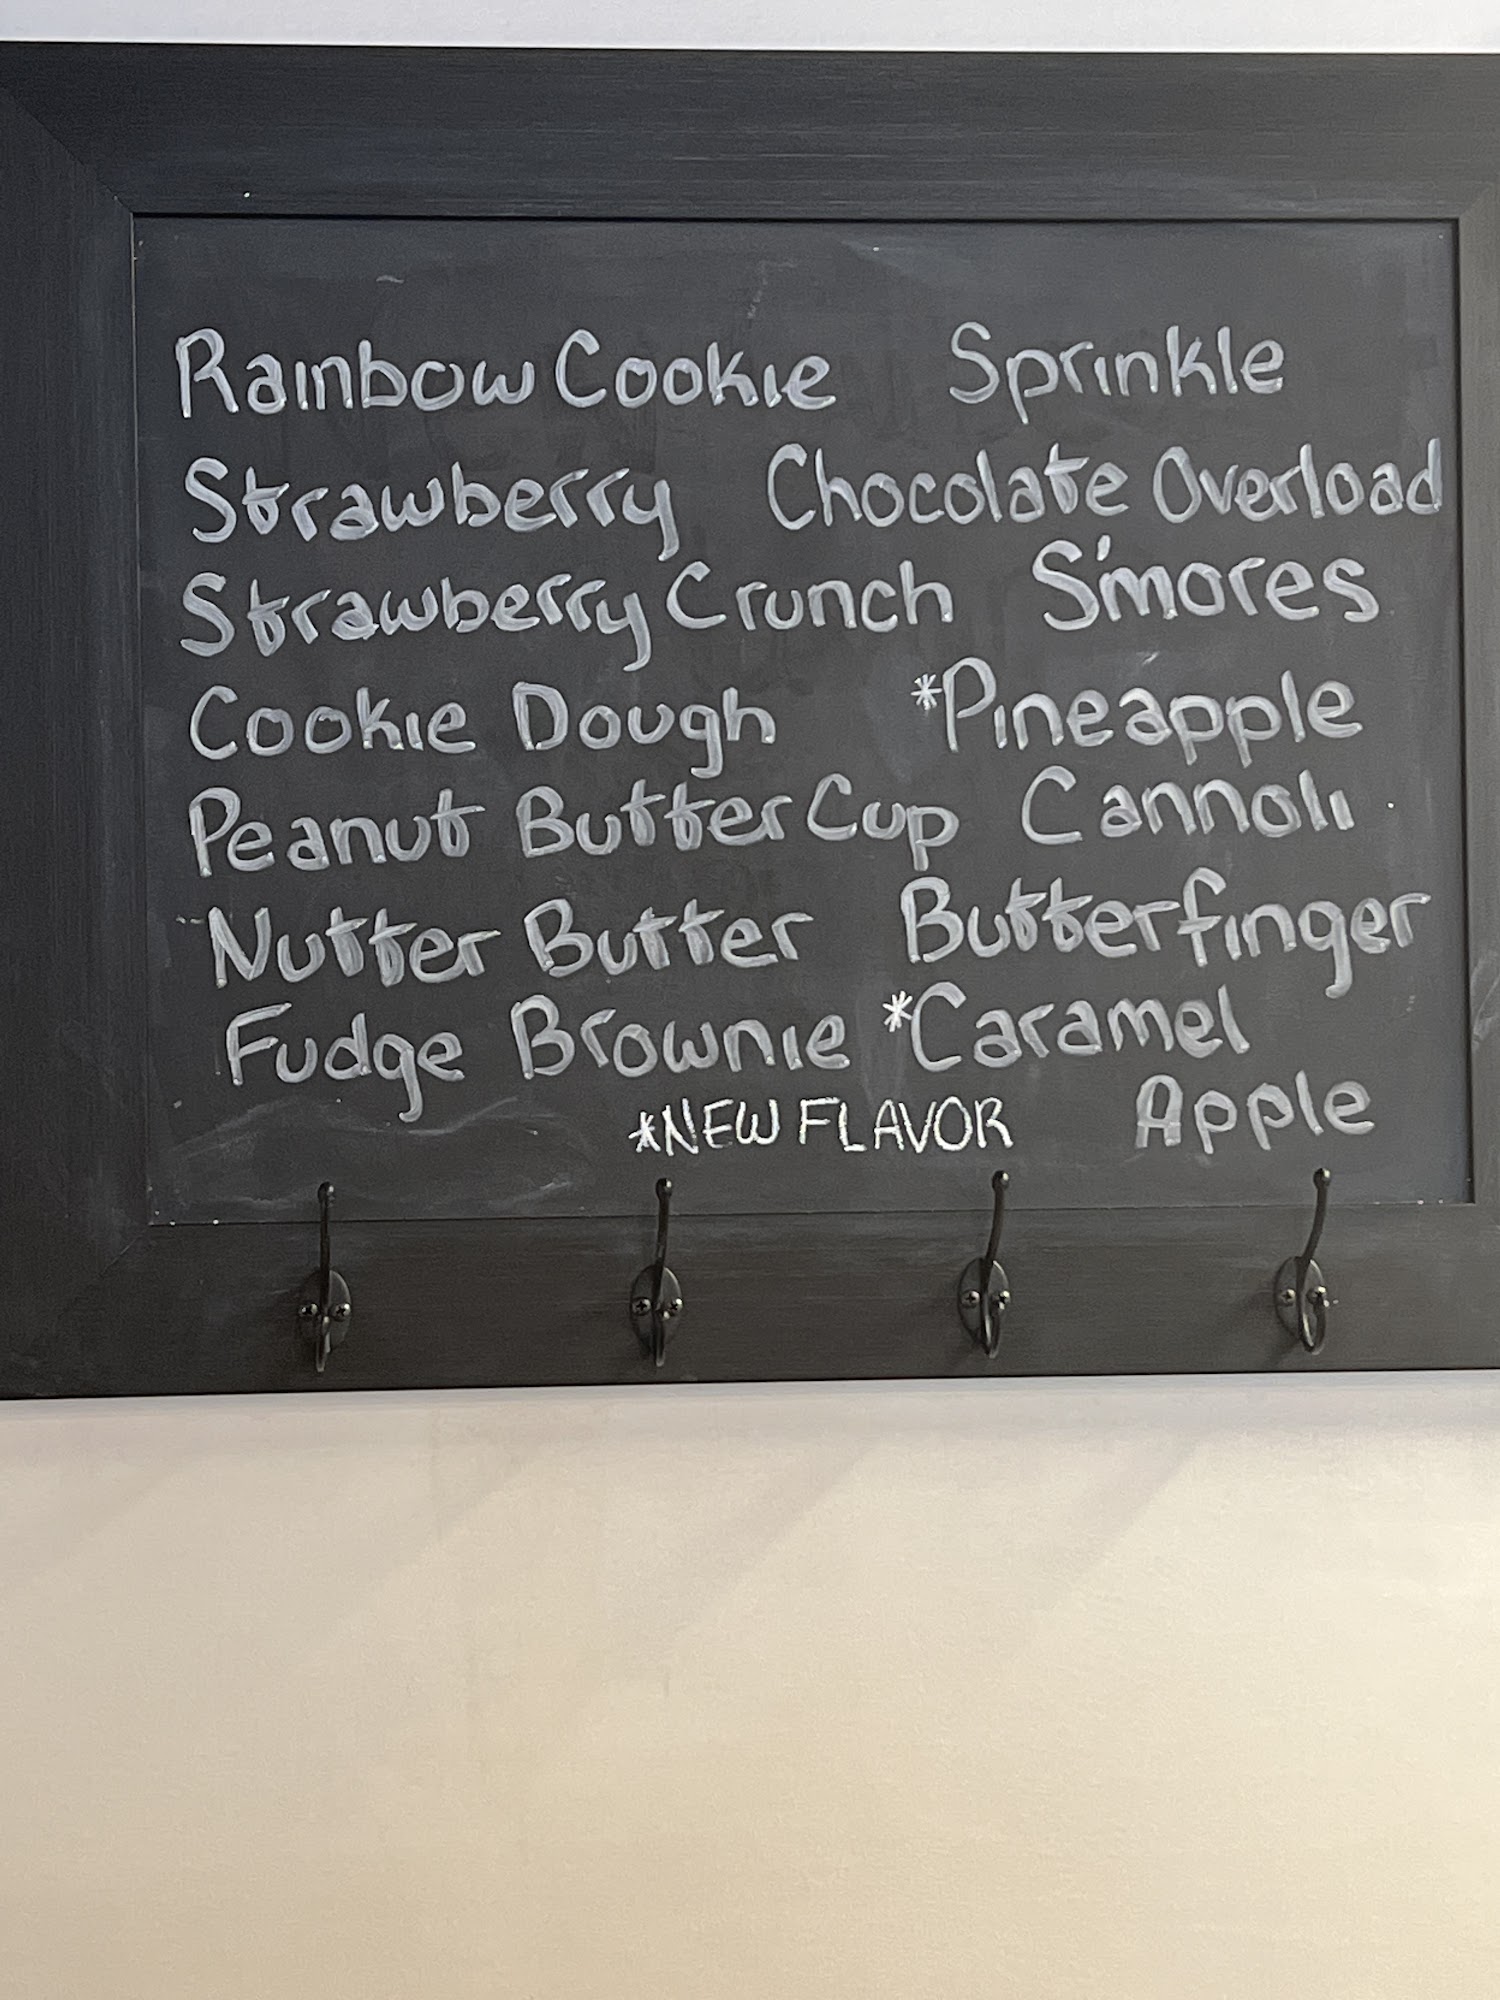 Rainbow Cookie Sprinkle
Strawberry Chocolate Overload
Strawberry Crunch S'mores
Cookie Dough *Pineapple
Peanut Butter Cup Cannoli
Nutter Butter Butterfinger
Fudge Brownie *Caramel
Apple
*NEW FLAVOR